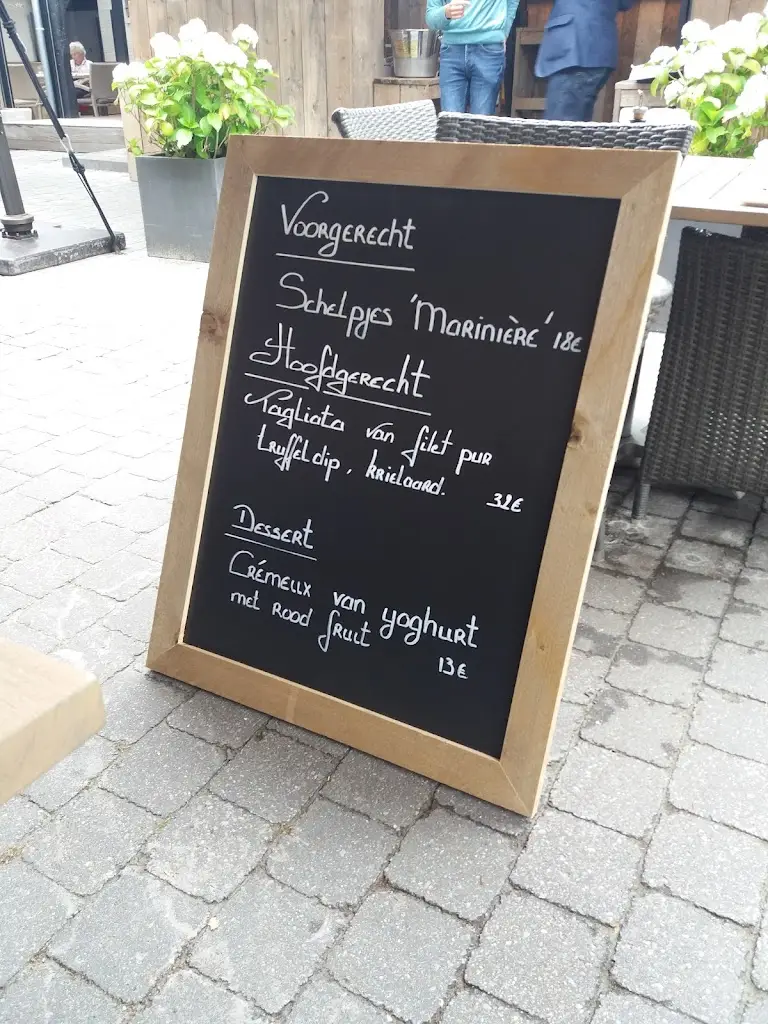 Voorgerecht
Schelpjes 'Marinière' 18€
Hoofdgerecht
Tagliata van filet pur
truffeldip, krielaard. 32€
Dessert
Crémeux van yoghurt
met rood fruit
13€